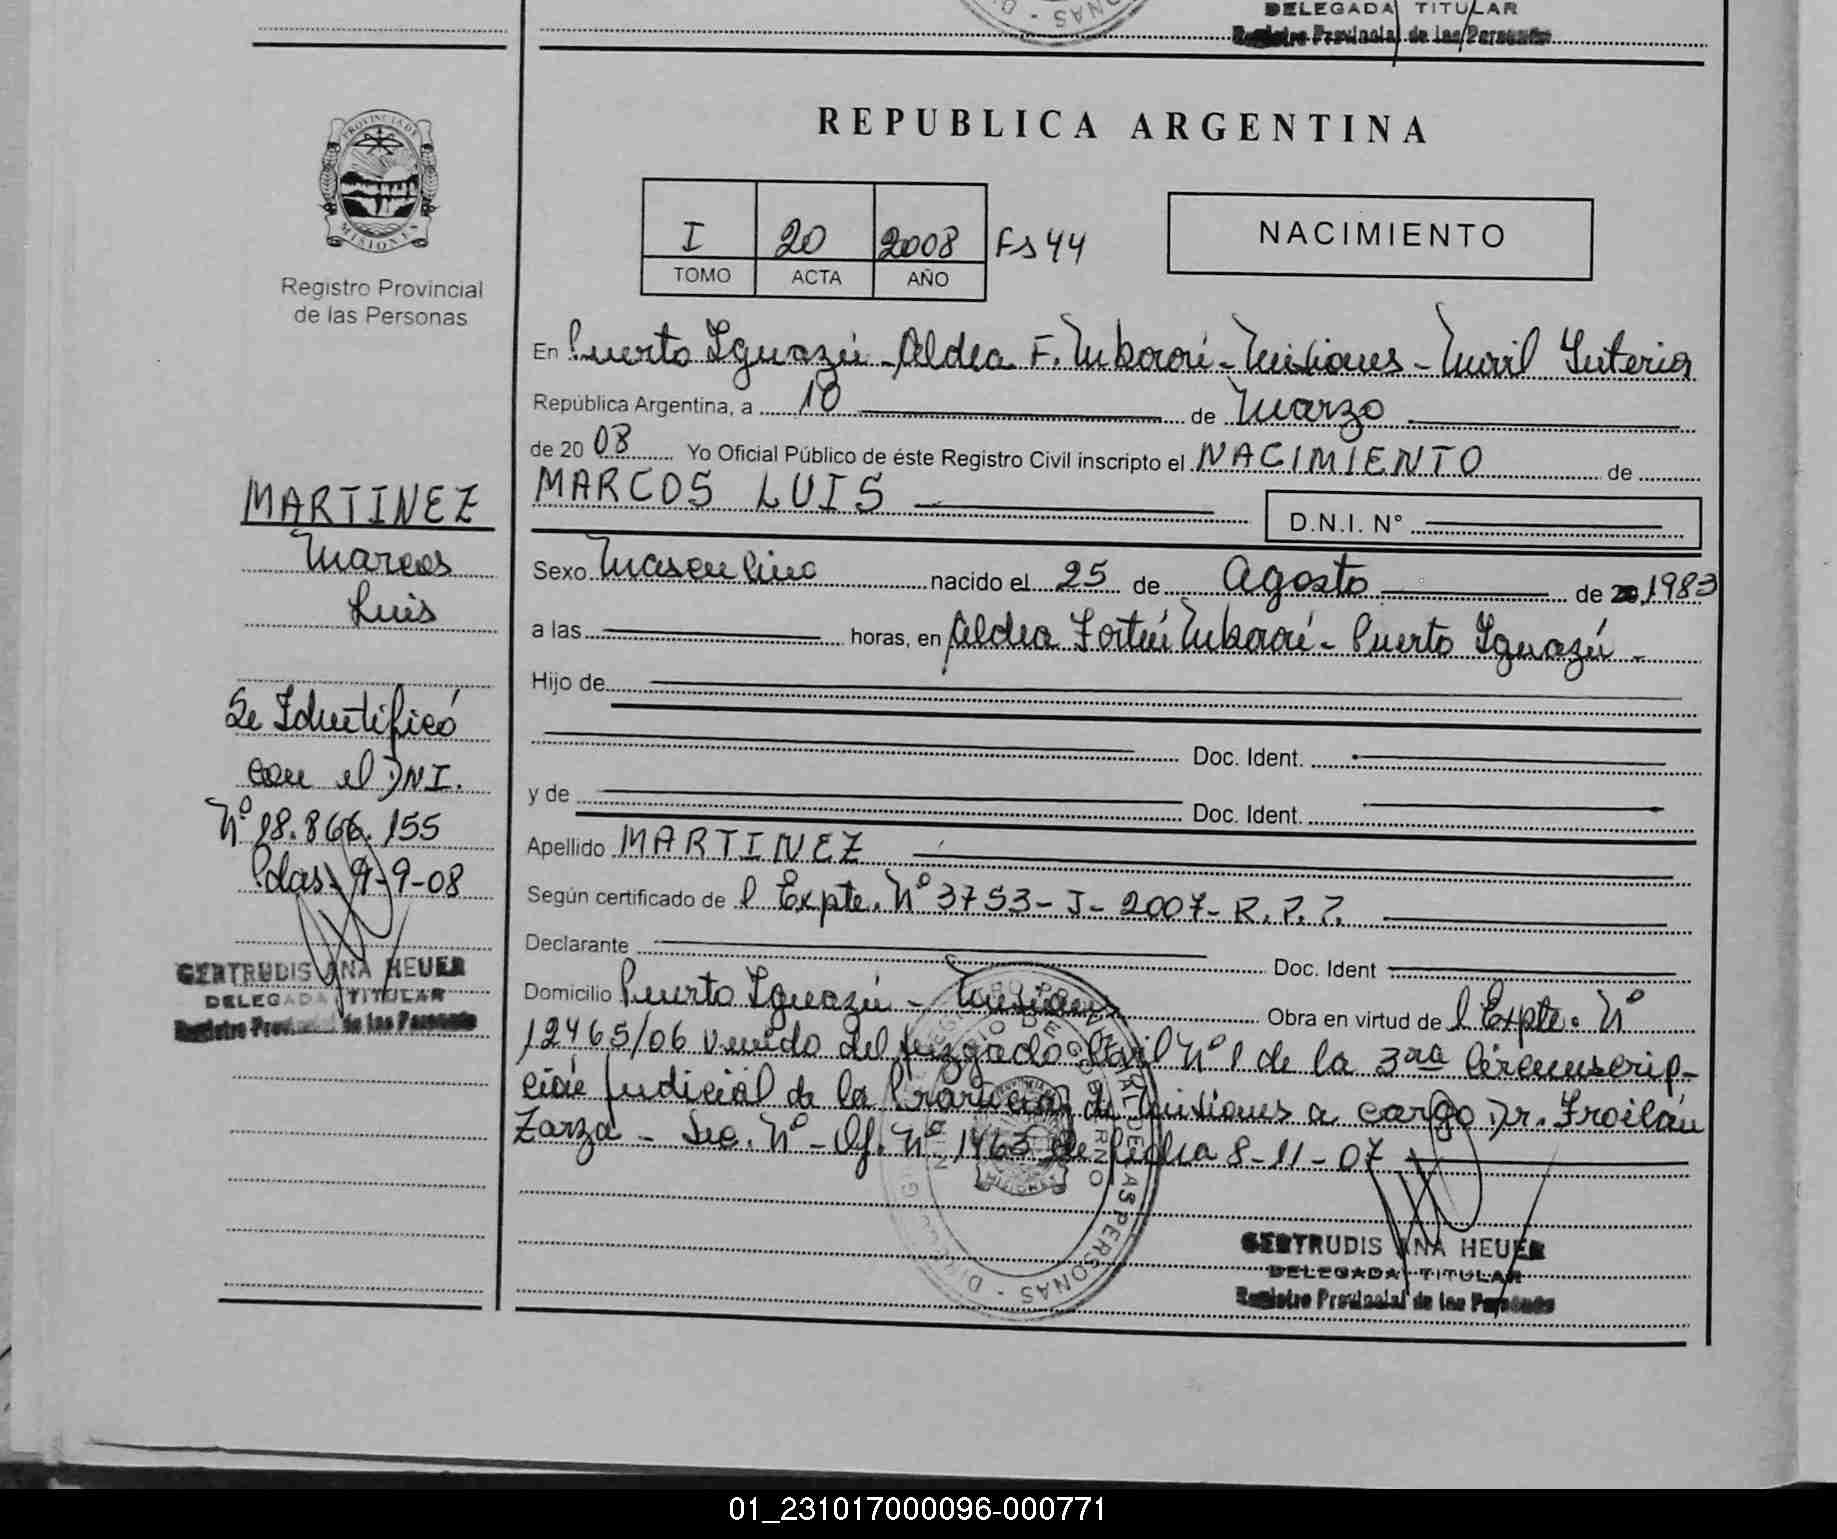 DELEGADA TITULAR
Registro Provincial de las Personas
REPUBLICA ARGENTINA
PROVINCIA DE
MISIONES
Registro Provincial
de las Personas
I 20 2008 Fs 44
TOMO ACTA AÑO
NACIMIENTO
En Puerto Iguazú - Aldea F. Mbororé - Misiones - Movil Interior
República Argentina, a 10 de Marzo
de 20 08 Yo Oficial Público de éste Registro Civil inscripto el NACIMIENTO de
MARCOS LUIS
D.N.I. N°
Sexo Masculino nacido el 25 de Agosto de 1983
a las horas, en Aldea Fortín Mbororé - Puerto Iguazú -
Hijo de
Doc. Ident.
y de Doc. Ident.
Apellido MARTINEZ
Según certificado de l Expte. N° 3753 - J - 2007 - R. P. P.
Declarante Doc. Ident
Domicilio Puerto Iguazú - Misiones Obra en virtud de l Expte. N°
12465/06 venido del Juzgado Civil N° 1 de la 3ra Circunscrip-
ción Judicial de la Provincia de Misiones a cargo Dr. Froilán
Zarza - Sec. N° - Of. N° 1463 de fecha 8-11-07
GERTRUDIS ANA HEUER
DELEGADA TITULAR
Registro Provincial de las Personas
MARTINEZ
Marcos
Luis
Se Identificó
con el DNI.
N° 18.866.155
Pdas. 9-9-08
GERTRUDIS ANA HEUER
DELEGADA TITULAR
Registro Provincial de las Personas
01_231017000096-000771